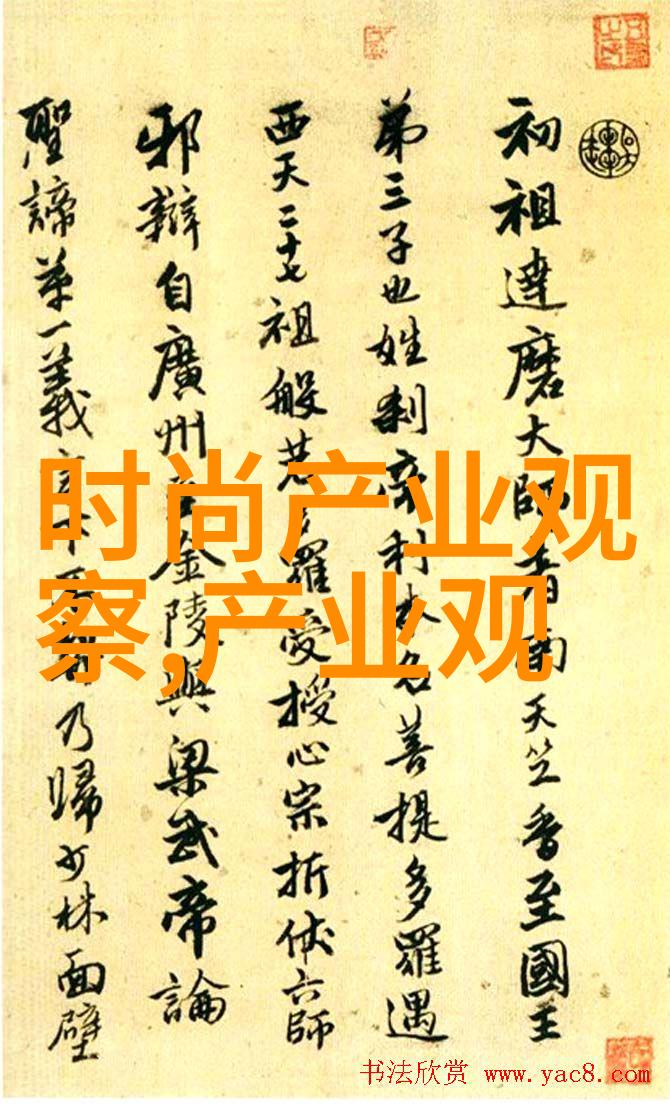 初祖達磨大師者南天竺香至國王
第三子也姓刹帝利本名菩提多羅遇
西天二十七祖般若多羅受授心宗折伏六師
邪辯自廣州至金陵與梁武帝論
聖諦第一義乃歸少林面壁
时尚产业观
察,产业观
书法欣赏 www.yac8.com